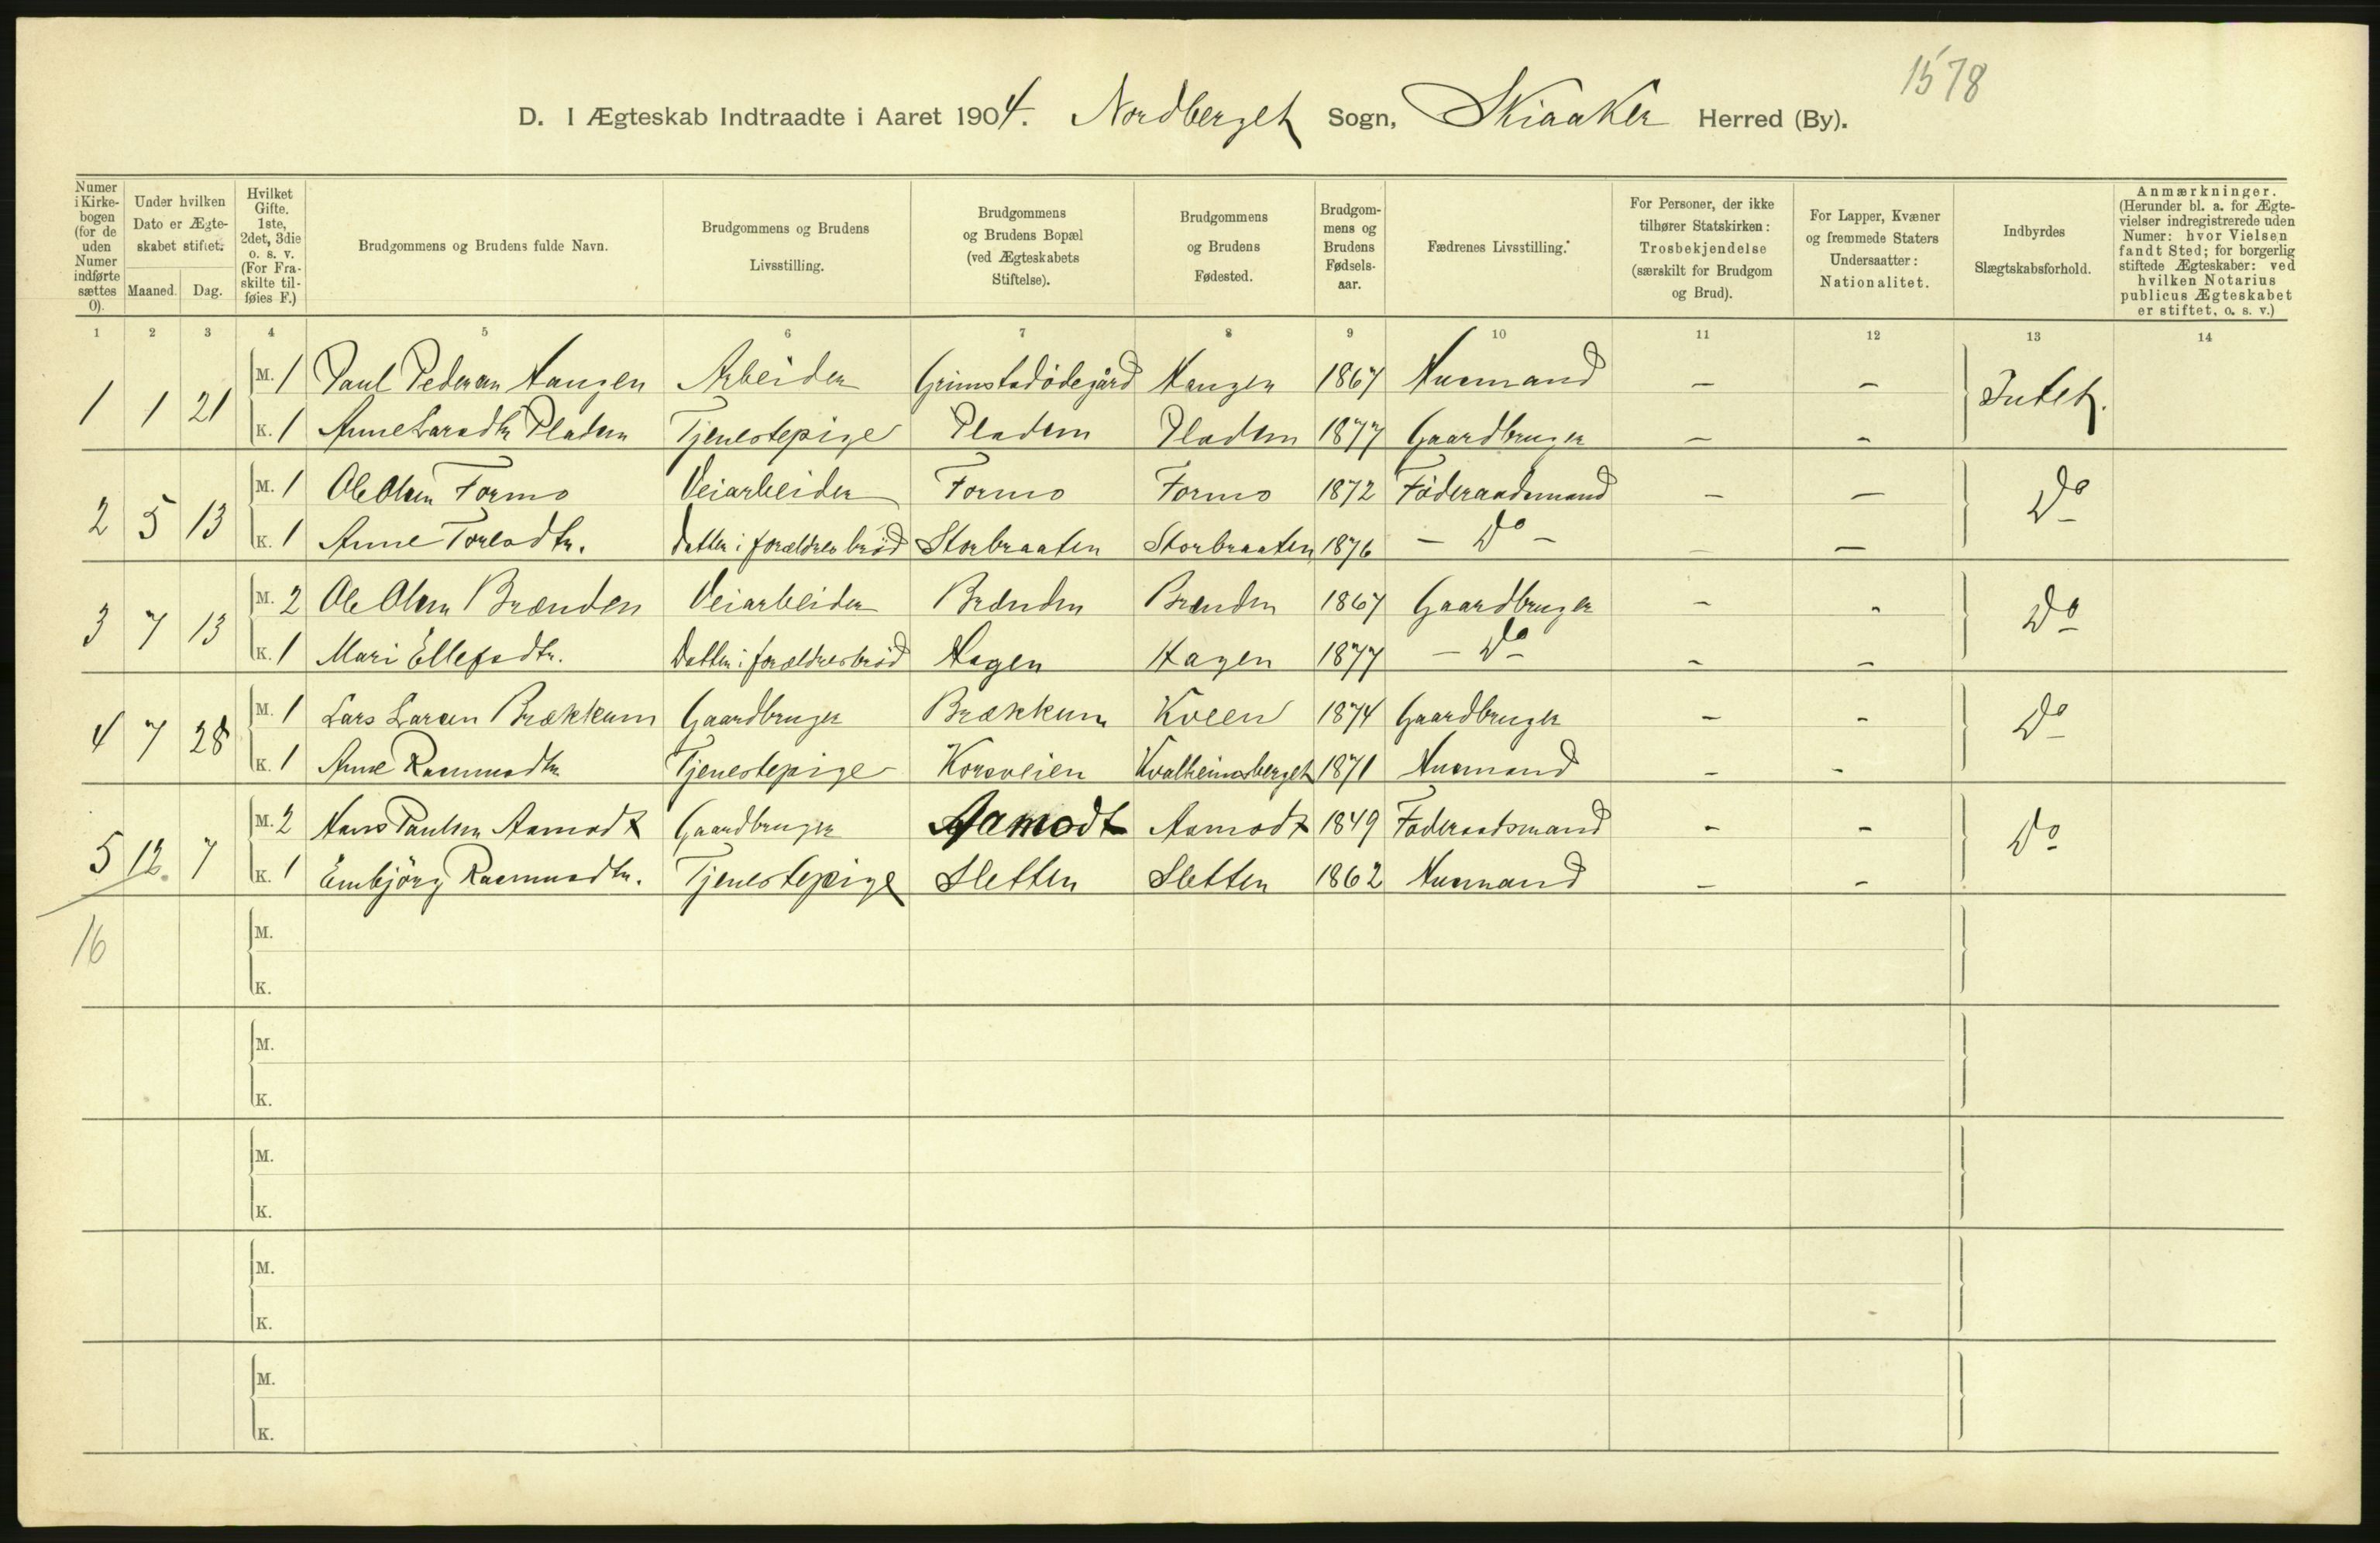 1578
D. I Ægteskab Indtraadte i Aaret 1904. Nordberget Sogn, Skiaaker Herred (By).
Numer i Kirkebogen (for de uden Numer indførte sættes 0).
Under hvilken Dato er Ægteskabet stiftet. Maaned. Dag.
Hvilket Gifte. 1ste, 2det, 3die o. s. v. (For Fraskilte tilføies F.)
Brudgommens og Brudens fulde Navn.
Brudgommens og Brudens Livsstilling.
Brudgommens og Brudens Bopæl (ved Ægteskabets Stiftelse).
Brudgommens og Brudens Fødested.
Brudgommens og Brudens Fødselsaar.
Fædrenes Livsstilling.
For Personer, der ikke tilhører Statskirken: Trosbekjendelse (særskilt for Brudgom og Brud).
For Lapper, Kvæner og fremmede Staters Undersaatter: Nationalitet.
Indbyrdes Slægtskabsforhold.
Anmærkninger. (Herunder bl. a. for Ægtevielser indregistrerede uden Numer: hvor Vielsen fandt Sted; for borgerlig stiftede Ægteskaber: ved hvilken Notarius publicus Ægteskabet er stiftet, o. s. v.)
1 2 3 4 5 6 7 8 9 10 11 12 13 14
1 1 21 M. 1 Paul Pedersen Haugen Arbeider Grimstadödegård Haugen 1867 Husmand – – Intet.
K. 1 Anne Larsdtr Pladsen Tjenestepige Pladsen Pladsen 1877 Gaardbruger – –
2 5 13 M. 1 Ole Olsen Formo Veiarbeider Formo Formo 1872 Föderaadsmand – – Do
K. 1 Anne Toresdtr. Datter i forældres bröd Storbraaten Storbraaten 1876 – Do – – –
3 7 13 M. 2 Ole Olsen Brænden Veiarbeider Brænden Brænden 1867 Gaardbruger – – Do
K. 1 Mari Ellefsdtr. Datter i forældres bröd Hagen Hagen 1877 – Do – –
4 7 28 M. 1 Lars Larsen Brækkum Gaardbruger Brækkum Kveen 1874 Gaardbruger – – Do
K. 1 Anne Rasmusdtr Tjenestepige Korsveien Kvalheimsberget 1871 Husmand – –
5 12. 7 M. 2 Hans Paulsen Aamodt Gaardbruger Aamodt Aamodt 1849 Föderaadsmand – – Do
K. 1 Embjörg Rasmusdtr. Tjenestepige Sletten Sletten 1862 Husmand – –
16 M.
K.
M.
K.
M.
K.
M.
K.
M.
K.